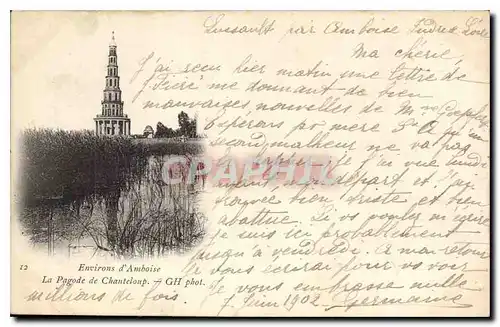 Lussault par Amboise Indre & Loire
Ma chérie,
J'ai reçu hier matin une lettre de
me donnant de bien
mauvaises nouvelles de
Espérons
second malheur ne va pas
je l'ai vue lundi
avant mon départ et je l'ai
trouvée bien triste et bien
abattue. Si vous
je suis ici probablement
jusqu'à vendredi. A mon retour
je vous écrirai pour vous voir
Je vous embrasse mille
millions de fois.
7 Juin 1902. Germaine
12 Environs d'Amboise
La Pagode de Chanteloup. — GH phot.
CPARAMA